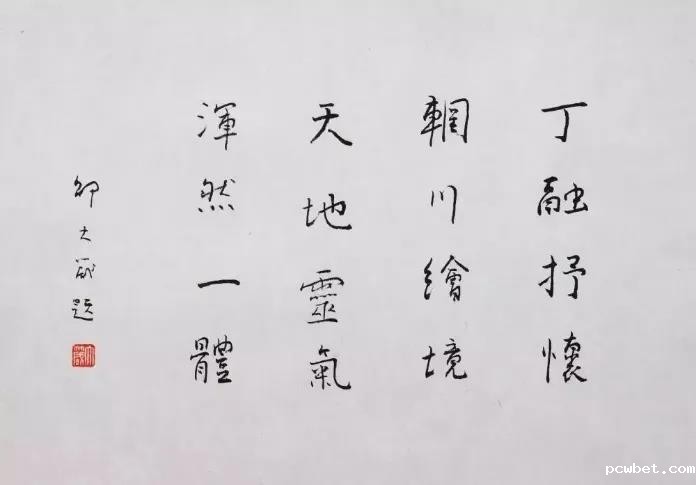 丁融抒懷
輞川繪境
天地靈氣
渾然一體
邵大箴題
pcwbet.com